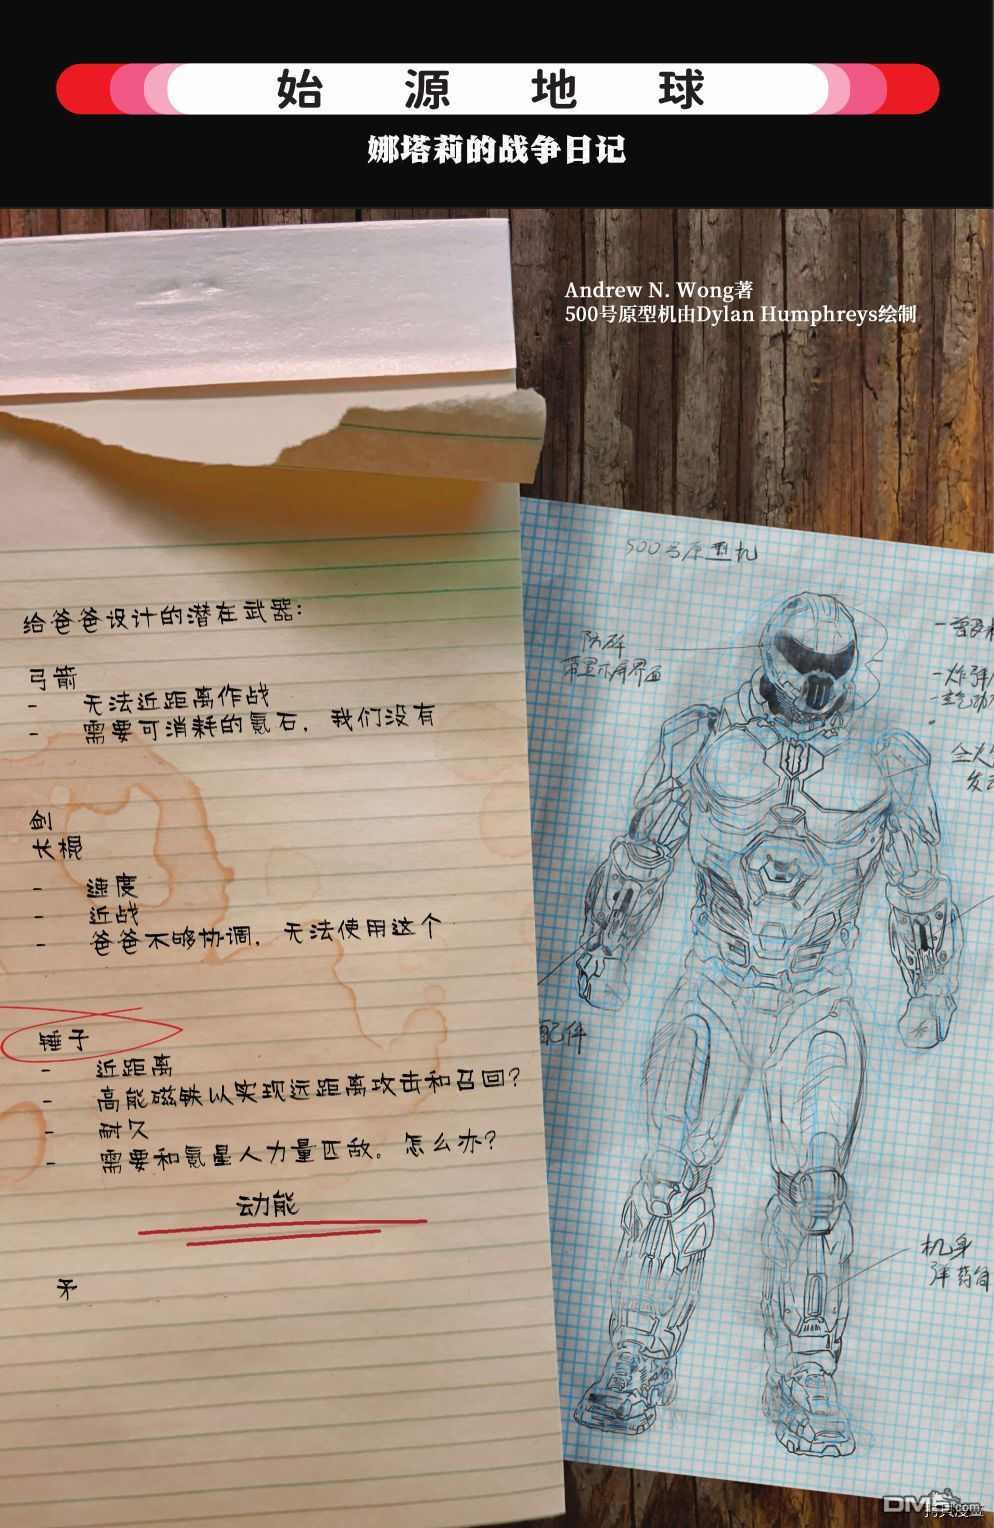 始源地球
娜塔莉的战争日记
Andrew N. Wong著
500号原型机由Dylan Humphreys绘制
给爸爸设计的潜在武器：
弓箭
- 无法近距离作战
- 需要可消耗的氪石，我们没有
剑
长棍
- 速度
- 近战
- 爸爸不够协调，无法使用这个
锤子
- 近距离
- 高能磁铁以实现远距离攻击和召回？
- 耐久
- 需要和氪星人力量匹敌。怎么办？
动能
矛
500号原型机
防碎
带显示屏界面
-炸弹
配件
机身
弹药筒
拷贝漫画